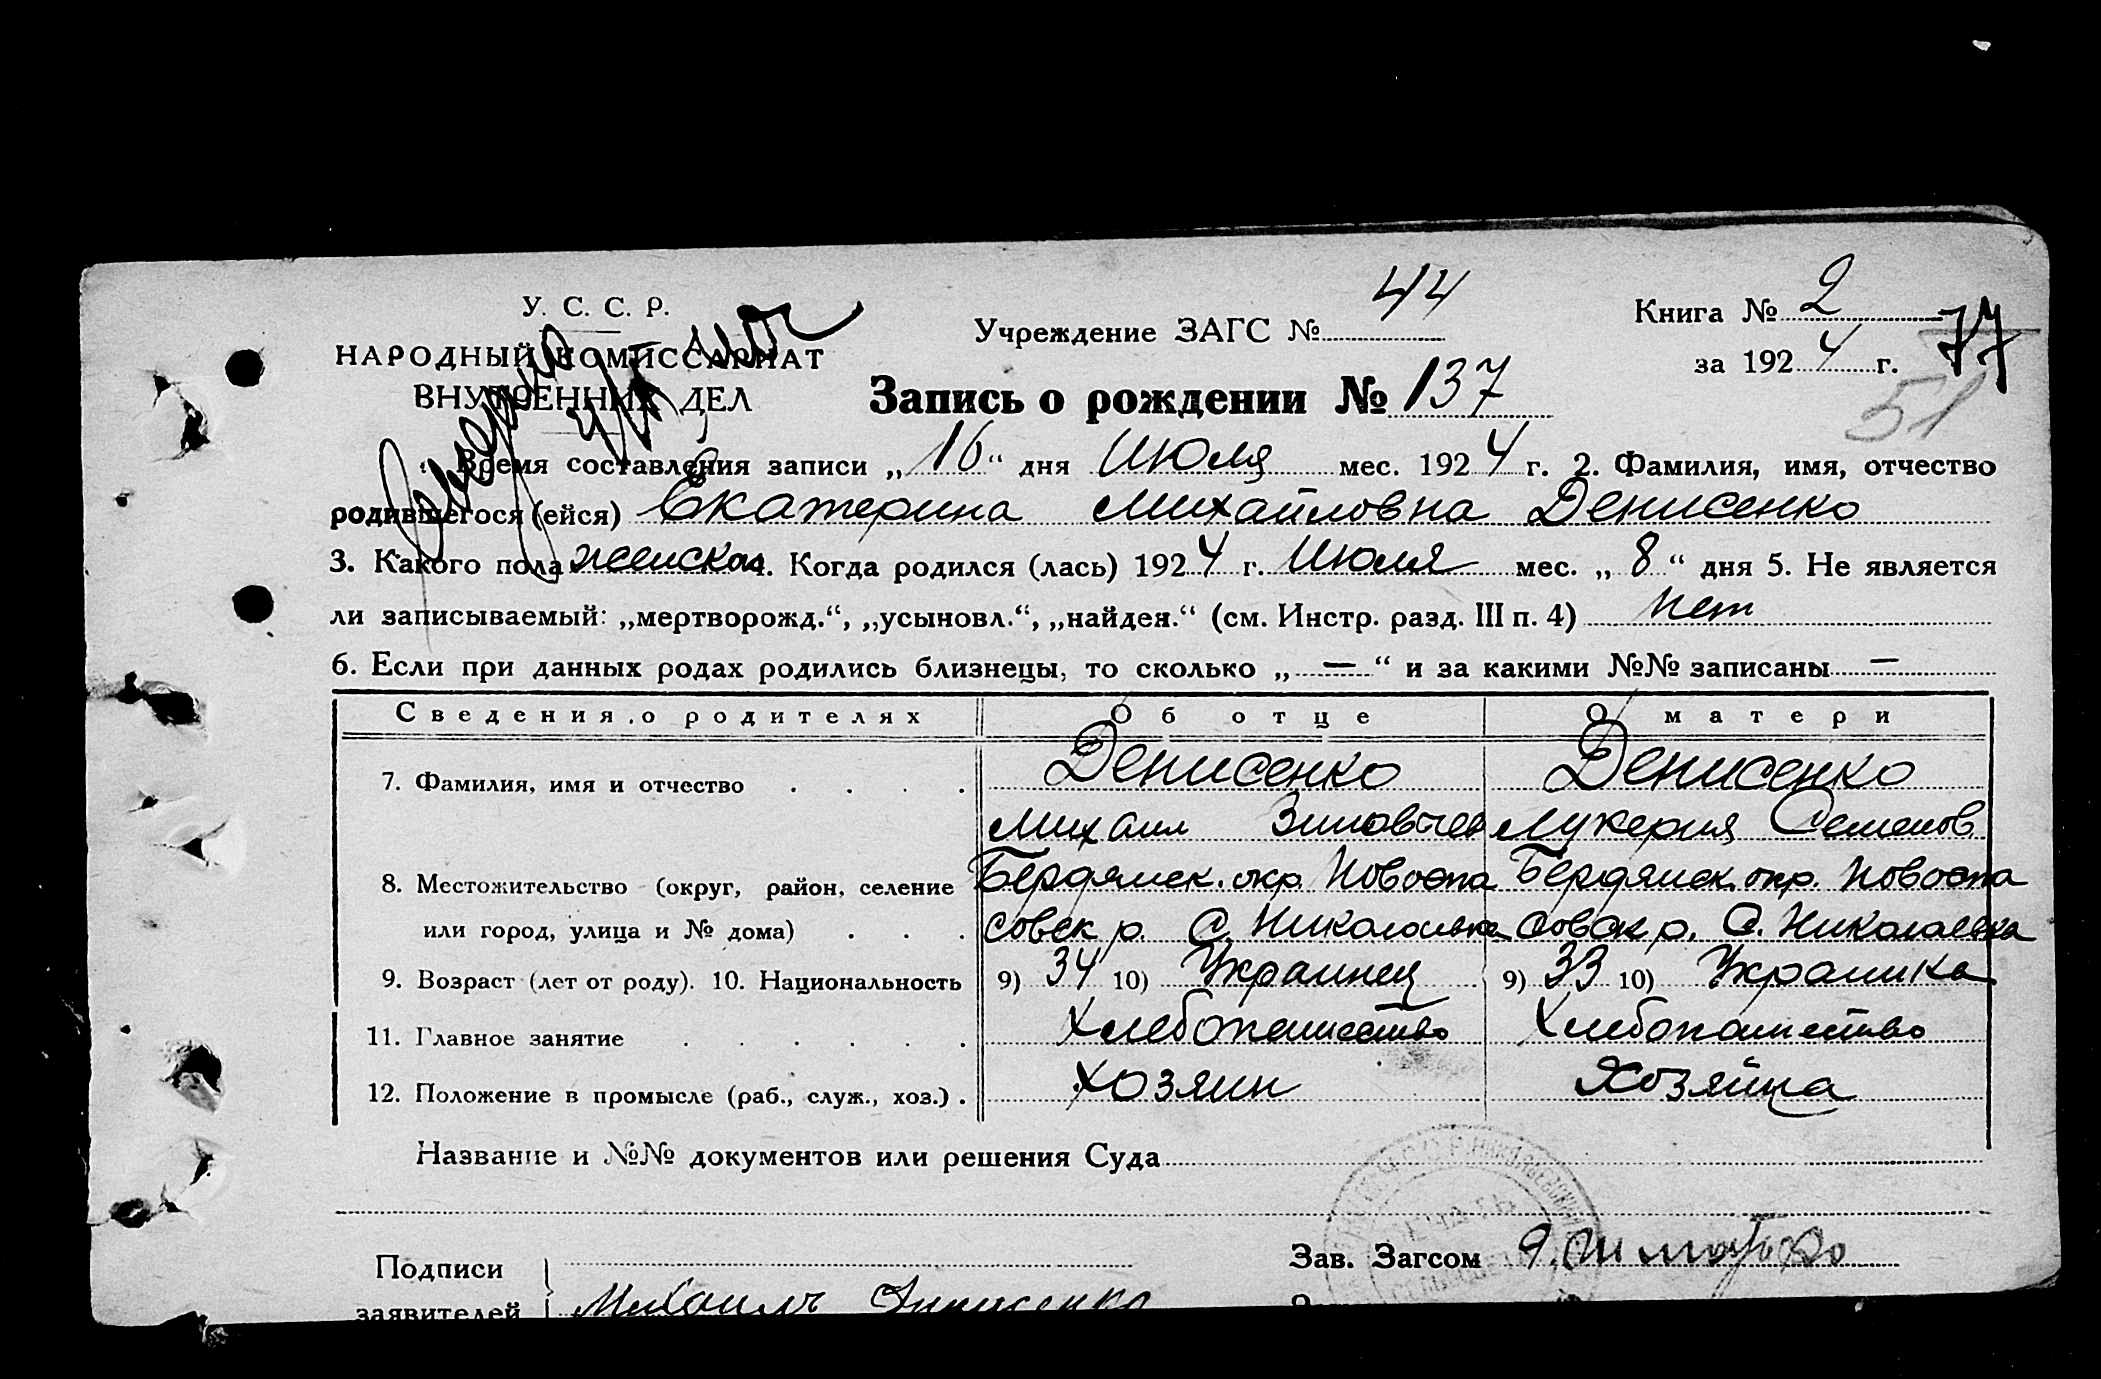 У. С. С. Р.
НАРОДНЫЙ КОМИССАРИАТ
ВНУТРЕННИХ ДЕЛ
Учреждение ЗАГС № 44
Книга № 2
за 1924 г.
77
51
Запись о рождении № 137
Время составления записи „16“ дня Июля мес. 1924 г. 2. Фамилия, имя, отчество
родившегося (ейся) Екатерина Михайловна Денисенко
3. Какого пола женской 4. Когда родился (лась) 1924 г. Июля мес. „8“ дня 5. Не является
ли записываемый: „мертворожд.“, „усыновл.“, „найден.“ (см. Инстр. разд. III п. 4) Нет
6. Если при данных родах родились близнецы, то сколько „—“ и за какими №№ записаны —
Сведения о родителях Об отце О матери
7. Фамилия, имя и отчество Денисенко Денисенко
Михаил Зиновьев Лукерия Семенов
8. Местожительство (округ, район, селение Бердянск. окр. Новоспа Бердянск. окр. Новоспа
или город, улица и № дома) совск р. С. Николаевка совск р. С. Николаевка
9. Возраст (лет от роду). 10. Национальность 9) 34 10) Украинец 9) 33 10) Украинка
11. Главное занятие Хлебопашество Хлебопашество
12. Положение в промысле (раб., служ., хоз.) Хозяин Хозяйка
Название и №№ документов или решения Суда
Подписи
заявителей Михаилъ Денисенко
Зав. Загсом